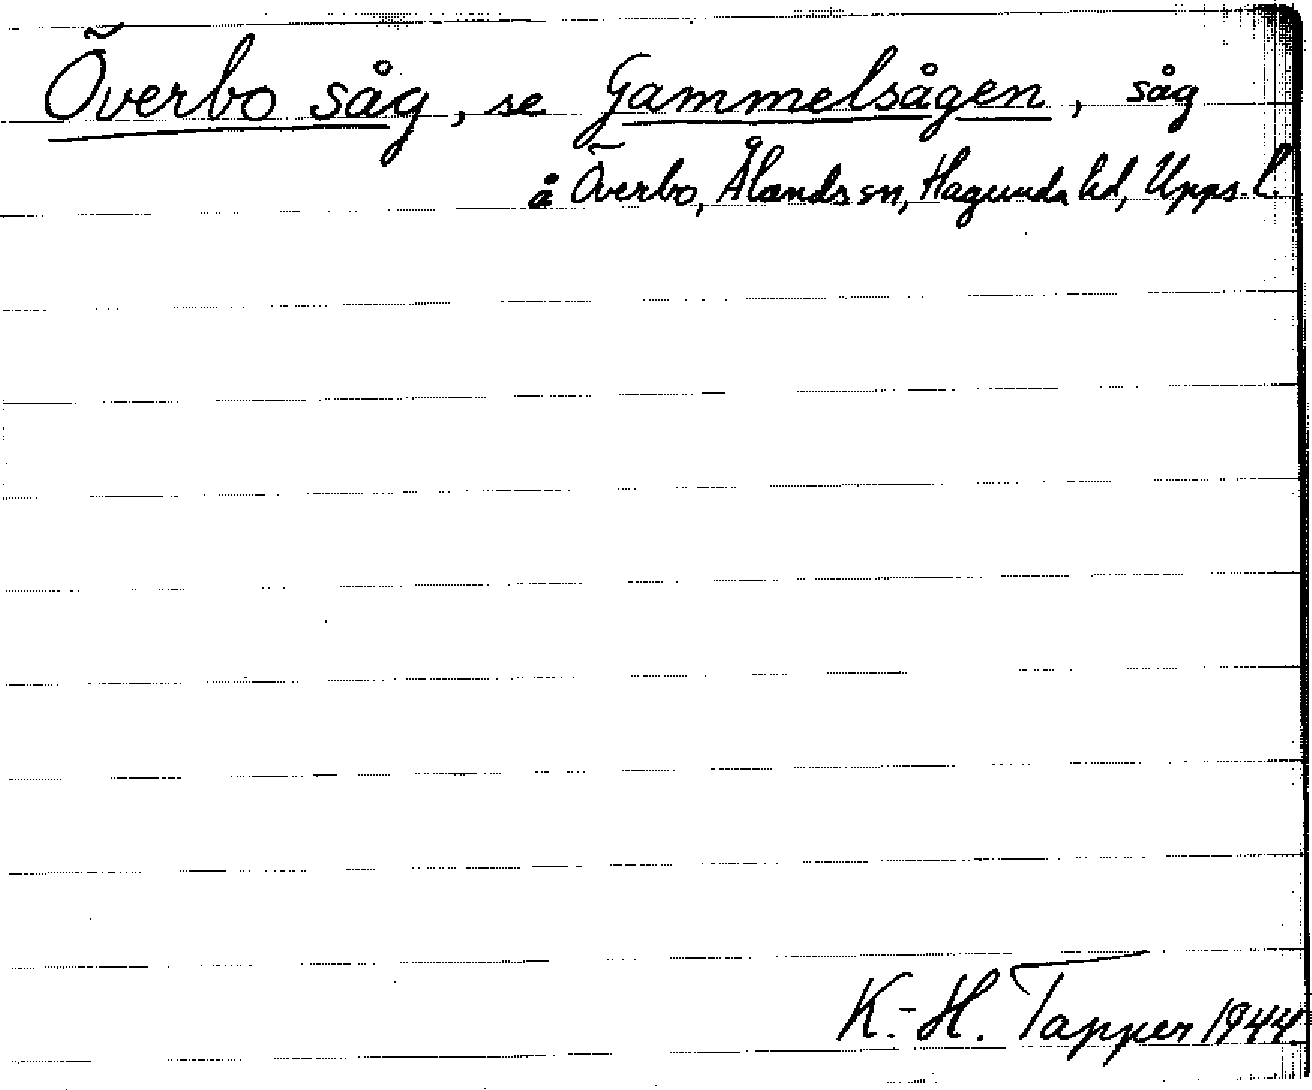 Överbo såg, se Gammelsågen, såg
å Överbo, Ålands sn, Hagunda hd, Upps. l.
K.-H. Tapper 1944